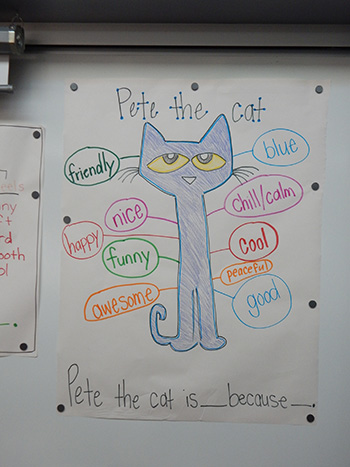 Pete the cat
friendly
blue
nice
chill/calm
happy
cool
funny
peaceful
awesome
good
Pete the cat is__because__.